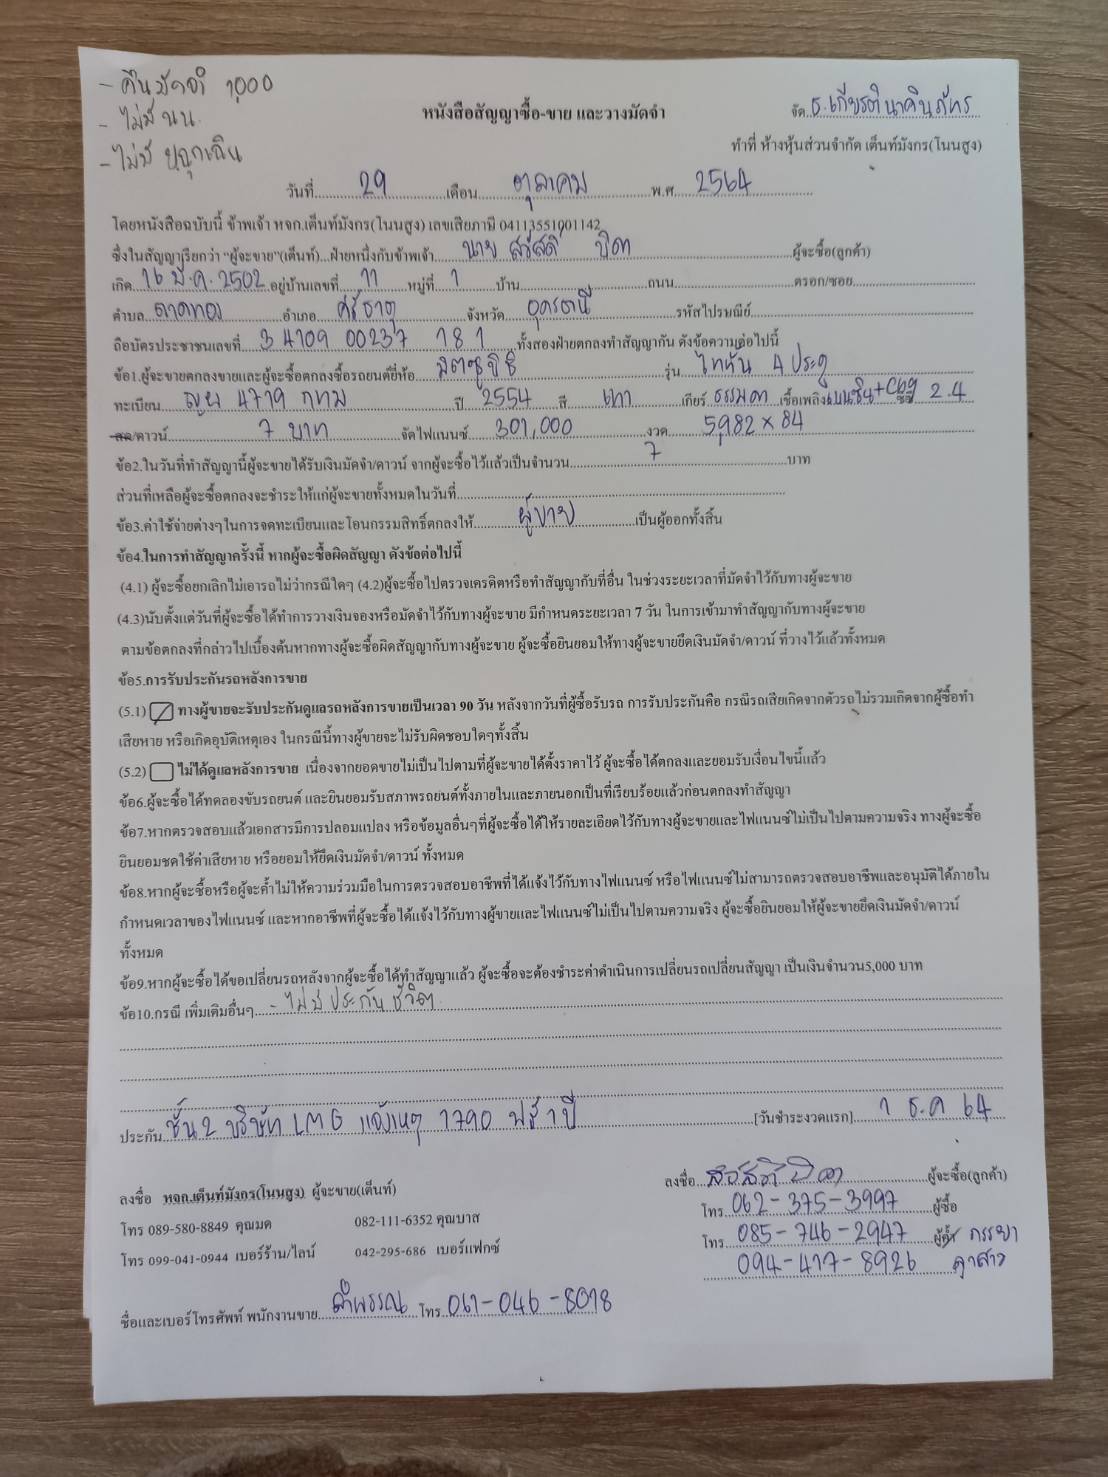 - คืนมัดจำ 1,000
- ไม่มี นน.
- ไม่มี ฉุกเฉิน
หนังสือสัญญาซื้อ-ขาย และวางมัดจำ
จัด..ธ.เกียรตินาคินภัทร
ทำที่ ห้างหุ้นส่วนจำกัด เต็นท์มังกร(โนนสูง)
วันที่ 29 เดือน ตุลาคม พ.ศ. 2564
โดยหนังสือฉบับนี้ ข้าพเจ้า หจก.เต็นท์มังกร(โนนสูง) เลขเสียภาษี 04113551001142
ซึ่งในสัญญาเรียกว่า "ผู้จะขาย"(เต็นท์)...ฝ่ายหนึ่งกับข้าพเจ้า นาย สวัสดิ์ ปิดา ผู้จะซื้อ(ลูกค้า)
เกิด 16 มี.ค. 2502 อยู่บ้านเลขที่ 11 หมู่ที่ 1 บ้าน ถนน ตรอก/ซอย
ตำบล ตาดทอง อำเภอ ศรีธาตุ จังหวัด อุดรธานี รหัสไปรษณีย์
ถือบัตรประชาชนเลขที่ 3 4109 00237 18 1 ทั้งสองฝ่ายตกลงทำสัญญากัน ดังข้อความต่อไปนี้
ข้อ1.ผู้จะขายตกลงขายและผู้จะซื้อตกลงซื้อรถยนต์ยี่ห้อ มิตซูบิชิ รุ่น ไทรทัน 4 ประตู
ทะเบียน ญผ 4719 กทม ปี 2554 สี เทา เกียร์ ธรรมดา เชื้อเพลิง เบนซิน+Cng ซีซี 2.4
สด/ดาวน์ 7 บาท จัดไฟแนนซ์ 301,000 งวด 5,982 x 84
ข้อ2.ในวันที่ทำสัญญานี้ผู้จะขายได้รับเงินมัดจำ/ดาวน์ จากผู้จะซื้อไว้แล้วเป็นจำนวน 7 บาท
ส่วนที่เหลือผู้จะซื้อตกลงจะชำระให้แก่ผู้จะขายทั้งหมดในวันที่
ข้อ3.ค่าใช้จ่ายต่างๆในการจดทะเบียนและโอนกรรมสิทธิ์ตกลงให้ ผู้ขาย เป็นผู้ออกทั้งสิ้น
ข้อ4.ในการทำสัญญาครั้งนี้ หากผู้จะซื้อผิดสัญญา ดังข้อต่อไปนี้
(4.1) ผู้จะซื้อยกเลิกไม่เอารถไม่ว่ากรณีใดๆ (4.2)ผู้จะซื้อไปตรวจเครดิตหรือทำสัญญากับที่อื่น ในช่วงระยะเวลาที่มัดจำไว้กับทางผู้จะขาย
(4.3)นับตั้งแต่วันที่ผู้จะซื้อได้ทำการวางเงินจองหรือมัดจำไว้กับทางผู้จะขาย มีกำหนดระยะเวลา 7 วัน ในการเข้ามาทำสัญญากับทางผู้จะขาย
ตามข้อตกลงที่กล่าวไปเบื้องต้นหากทางผู้จะซื้อผิดสัญญากับทางผู้จะขาย ผู้จะซื้อยินยอมให้ทางผู้จะขายยึดเงินมัดจำ/ดาวน์ ที่วางไว้แล้วทั้งหมด
ข้อ5.การรับประกันรถหลังการขาย
(5.1) ทางผู้ขายจะรับประกันดูแลรถหลังการขายเป็นเวลา 90 วัน หลังจากวันที่ผู้ซื้อรับรถ การรับประกันคือ กรณีรถเสียเกิดจากตัวรถไม่รวมเกิดจากผู้ซื้อทำ
เสียหาย หรือเกิดอุบัติเหตุเอง ในกรณีนี้ทางผู้ขายจะไม่รับผิดชอบใดๆทั้งสิ้น
(5.2) ไม่ได้ดูแลหลังการขาย เนื่องจากยอดขายไม่เป็นไปตามที่ผู้จะขายได้ตั้งราคาไว้ ผู้จะซื้อได้ตกลงและยอมรับเงื่อนไขนี้แล้ว
ข้อ6.ผู้จะซื้อได้ทดลองขับรถยนต์ และยินยอมรับสภาพรถยนต์ทั้งภายในและภายนอกเป็นที่เรียบร้อยแล้วก่อนตกลงทำสัญญา
ข้อ7.หากตรวจสอบแล้วเอกสารมีการปลอมแปลง หรือข้อมูลอื่นๆที่ผู้จะซื้อได้ให้รายละเอียดไว้กับทางผู้จะขายและไฟแนนซ์ไม่เป็นไปตามความจริง ทางผู้จะซื้อ
ยินยอมชดใช้ค่าเสียหาย หรือยอมให้ยึดเงินมัดจำ/ดาวน์ ทั้งหมด
ข้อ8.หากผู้จะซื้อหรือผู้จะค้ำไม่ให้ความร่วมมือในการตรวจสอบอาชีพที่ได้แจ้งไว้กับทางไฟแนนซ์ หรือไฟแนนซ์ไม่สามารถตรวจสอบอาชีพและอนุมัติได้ภายใน
กำหนดเวลาของไฟแนนซ์ และหากอาชีพที่ผู้จะซื้อได้แจ้งไว้กับทางผู้ขายและไฟแนนซ์ไม่เป็นไปตามความจริง ผู้จะซื้อยินยอมให้ผู้จะขายยึดเงินมัดจำ/ดาวน์
ทั้งหมด
ข้อ9.หากผู้จะซื้อได้ขอเปลี่ยนรถหลังจากผู้จะซื้อได้ทำสัญญาแล้ว ผู้จะซื้อจะต้องชำระค่าดำเนินการเปลี่ยนรถเปลี่ยนสัญญา เป็นเงินจำนวน5,000 บาท
ข้อ10.กรณี เพิ่มเติมอื่นๆ - ไม่มีประกันชีวิต
ประกัน ชั้น 2 บริษัท LMG แจ้งเหตุ 1790 ฟรี 1 ปี [วันชำระงวดแรก] 1 ธ.ค 64
ลงชื่อ หจก.เต็นท์มังกร(โนนสูง) ผู้จะขาย(เต็นท์)
ลงชื่อ สวัสดิ์ ปิดา ผู้จะซื้อ(ลูกค้า)
โทร 089-580-8849 คุณมด 082-111-6352 คุณบาส
โทร 062-375-3997 ผู้ซื้อ
โทร 099-041-0944 เบอร์ร้าน/ไลน์ 042-295-686 เบอร์แฟกซ์
โทร 085-746-2947 ผู้ค้ำ ภรรยา
094-417-8926 ลูกสาว
ชื่อและเบอร์โทรศัพท์ พนักงานขาย ลำพรรณ โทร 061-046-8018